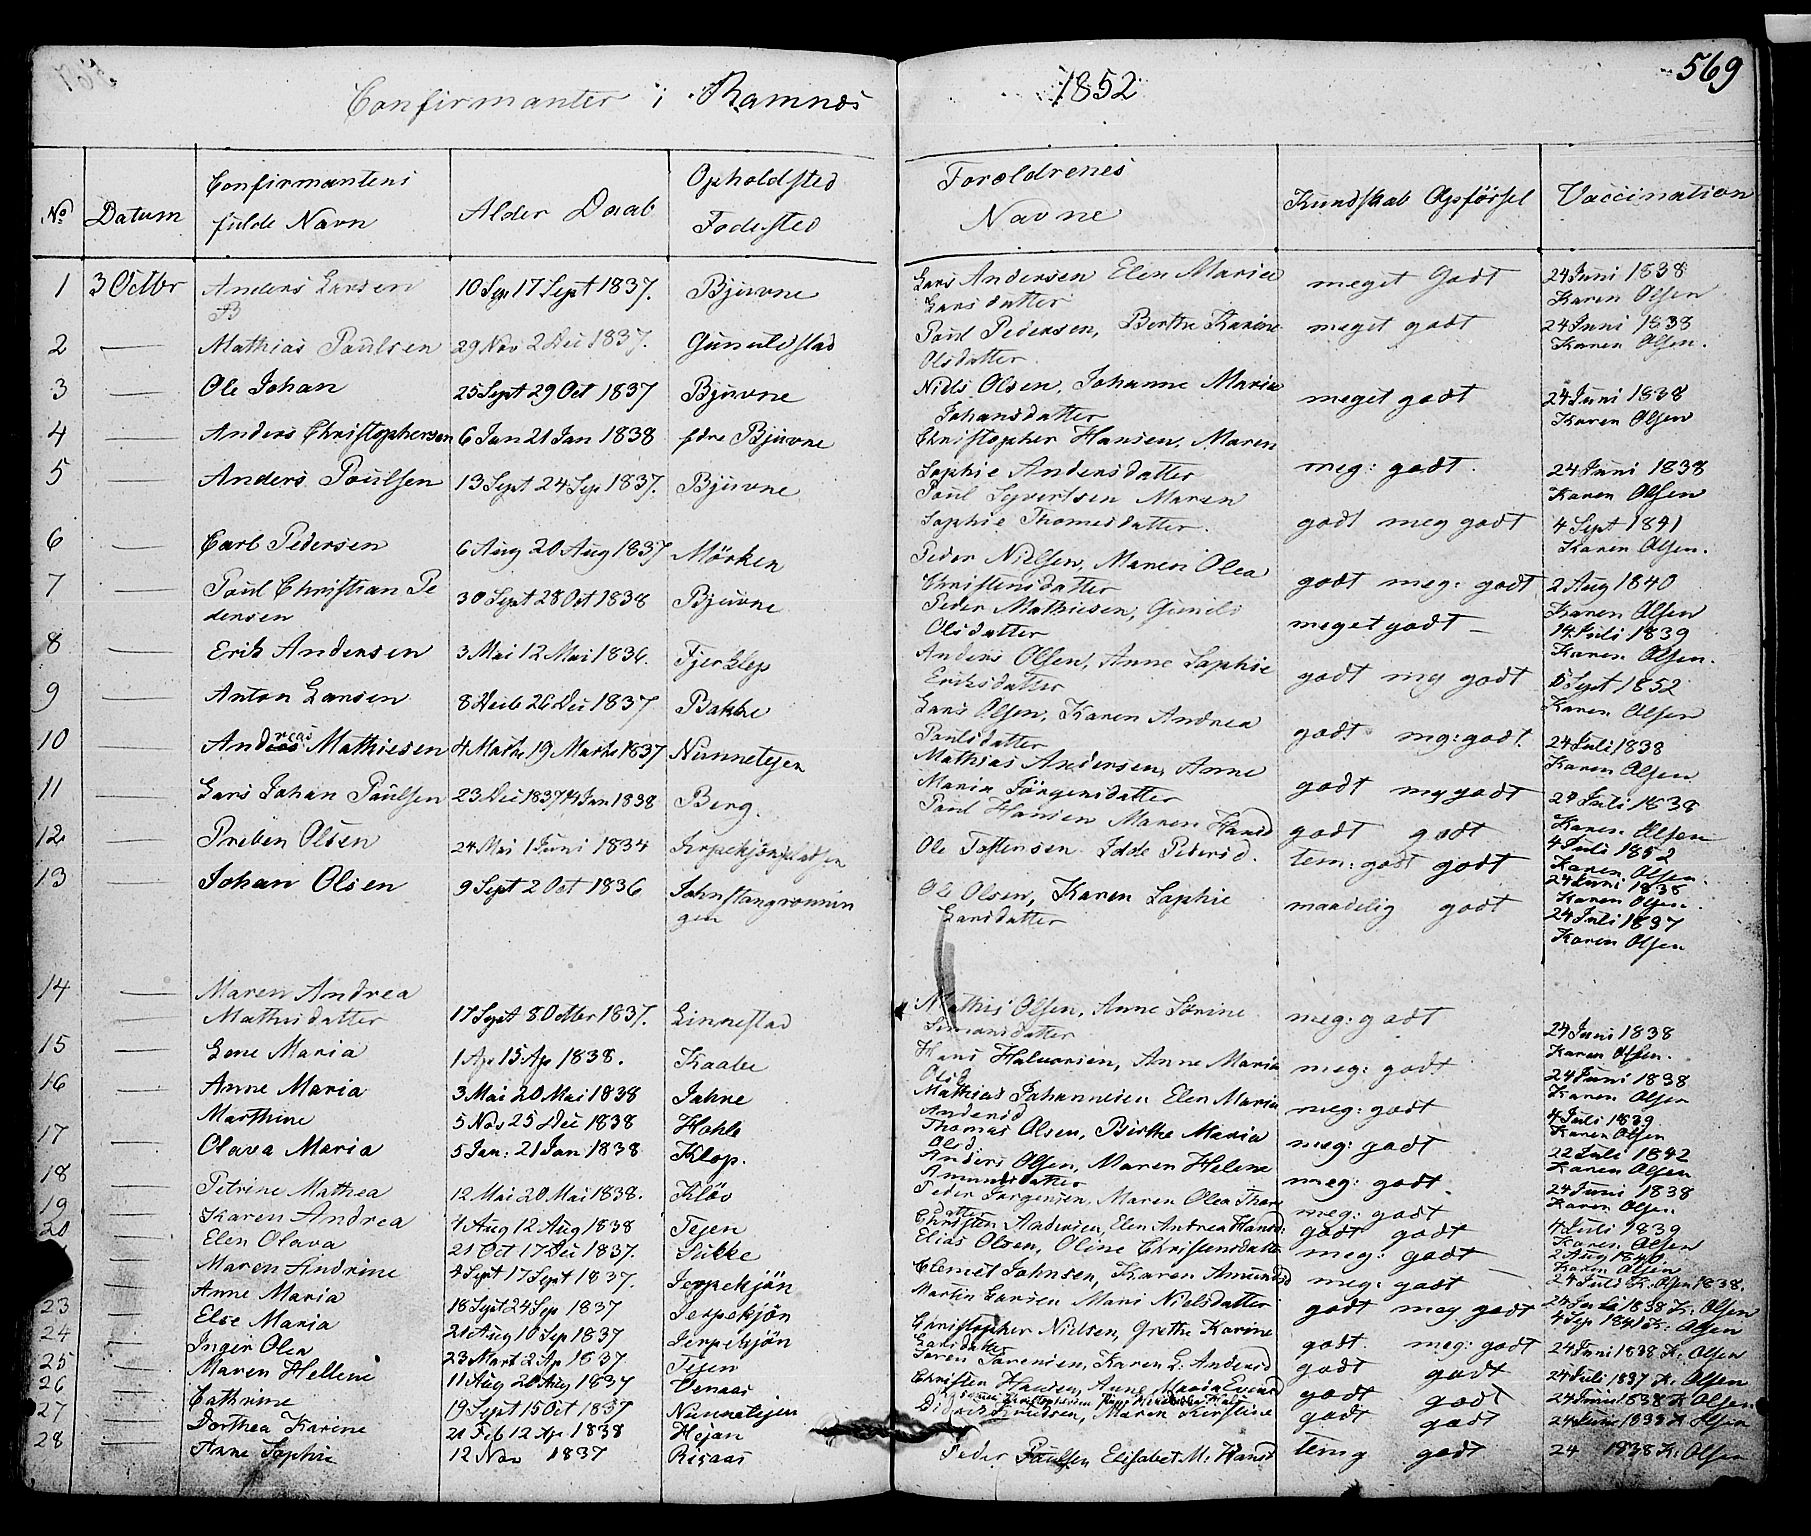 Confirmanter i Ramnæs 1852 569
No Datum Confirmantens fulde Navn Alder Daab Opholdsted Fodested Foroldrenes Navne Kundskab Opförsel Vaccination
1 3 Octbr Anders Larsen B 10 Sep 17 Sept 1837. Bjuvne Lars Andersen Elen Maria Larsdatter meget Godt 24 Juni 1838 Karen Olsen
2 — Mathias Paulsen 29 Nov 2 Dec 1837. Gunuldstad Paul Pedersen, Berthe Karine Olsdatter meget godt 24 Juni 1838 Karen Olsen.
3 — Ole Johan 25 Sept 29 Oct 1837 Bjuvne Niels Olsen, Johanne Maria Johansdatter meget godt 24 Juni 1838 Karen Olsen
4 — Anders Christophersen 6 Jan 21 Jan 1838 fdre Bjuvne Christopher Hansen, Maren Sophie Andersdatter meg: godt. 24 Juni 1838 Karen Olsen
5 — Anders Poulsen 13 Sept 24 Sep 1837. Bjuvne Poul Syvertsen Maren Sophie Thomesdatter. godt meg godt 4 Sept 1841 Karen Olsen.
6 — Carl Pedersen 6 Aug 20 Aug 1837 Mörken Peder Nielsen, Maren Olea Christensdatter godt meg: godt 2 Aug 1840 Karen Olsen
7 — Poul Christian Pedersen 30 Sept 28 Oct 1838 Bjuvne Peder Mathiesen, Gunild Olsdatter meget godt — 14 Juli 1839 Karen Olsen.
8 — Erik Andersen 3 Mai 12 Mai 1836. Fjerklep Anders Olsen, Anne Sophie Eriksdatter godt meg godt Sept 1852 Karen Olsen
9 — Anton Larsen 8 Decb 26 Dec 1837 Bakke Lars Olsen, Karen Andrea Paulsdatter godt mg: godt. 24 Juli 1838 Karen Olsen
10 — Andreas Mathiesen 4 Marts 19 Marts 1837 Nunnetejen Mathias Andersen, Anne Maria Jörgensdatter godt mg godt 24 Juli 1838 Karen Olsen
11 — Lars Johan Paulsen 23 Dec 1837 14 Jan 1838 Berg. Paul Hansen Maren Hansd godt godt 4 Juli 1852 Karen Olsen.
12 — Preben Olsen 24 Mai 1 Juni 1834 Ole Toftensen Idde Pedersd. tem: godt godt 24 Juni 1838 Karen Olsen.
13 — Johan Olsen 9 Sept 2 Oct 1836 Ole Olsen, Karen Sophie Larsdatter maadelig godt 24 Juli 1837 Karen Olsen
14 — Maren Andrea Mathisdatter 17 Sept 8 Octbr 1837. Linnestad Mathis Olsen, Anne Sörine Simonsdatter meg: godt 24 Juni 1838 Karen Olsen.
15 — Lene Maria 1 Ap 15 Ap 1838. Kaabe Hans Halvorsen, Anne Maria Olsd meg: godt 24 Juni 1838 Karen Olsen
16 — Anne Maria 3 Mai 20 Mai 1838 Jahre Mathias Johannesen Elen Maria Andersd meg: godt 4 Juli 1839 Karen Olsen
— Marthine 5 Nov 25 Dec 1838 Hohle Thomas Olsen, Birthe Maria Olsd. meg: godt 22 Juli 1842 Karen Olsen
17 — Olava Maria 5 Jan: 21 Jan 1838 Klop. Anders Olsen, Maren Helene Amundsdatter meg: godt. 24 Juni 1838 Karen Olsen
18 — Petrine Mathea 12 Mai 20 Mai 1838. Klöv Peder Jörgensen, Maren Olea Thoredatter meg: godt 4 Juli 1839 Karen Olsen
19 — Karen Andrea 4 Aug 12 Aug 1838 Tejen Christen Andersen, Elen Andrea Hansd: godt godt 2 Aug 1840 Karen Olsen
20 — Elen Olava 21 Oct 17 Dec 1837. Elias Olsen, Oline Christensdatter meg: godt — 24 Juli K: Olsen 1838.
— Maren Andrine 4 Sept 17 Sept 1837. Jerpekjön Clemet Johnsen, Karen Amundsd meg: godt 24 Juli 1838 K: Olsen
— Anne Maria 18 Sept 24 Sep 1837 Jerpekjön Martin Larsen Mari Nielsdatter godt meg godt 4 Sep 1841 K: Olsen
23 — Else Maria 21 Aug 10 Sep 1837 Jerpekjön Christopher Nielsen, Grethe Karine Larsdatter godt. meg: godt 24 Juni 1838 K: Olsen
24 — Inger Olea 23 Mart 2 Ap 1837 Tejen Sören Sörensen, Karen L. Andersd godt godt 24 Juli 1837 K. Olsen
25 — Maren Hellene 11 Aug 20 Aug 1837 Venaas Christen Hansen, Anne Maria godt godt 24 Juni 1838 K Olsen
26 — Cathrine 19 Sept 15 Oct 1837 Nunnetejen
27 — Dorthea Karine 21 Feb 12 Ap 1838 Hejan Knudsen, Maren Kirstine godt godt 24 Juni 1838 K Olsen
28 — Anne Sophie 12 Nov 1837 Risaas Peder Paulsen Elisabet M: Hansd temg godt 24 1838 K: Olsen